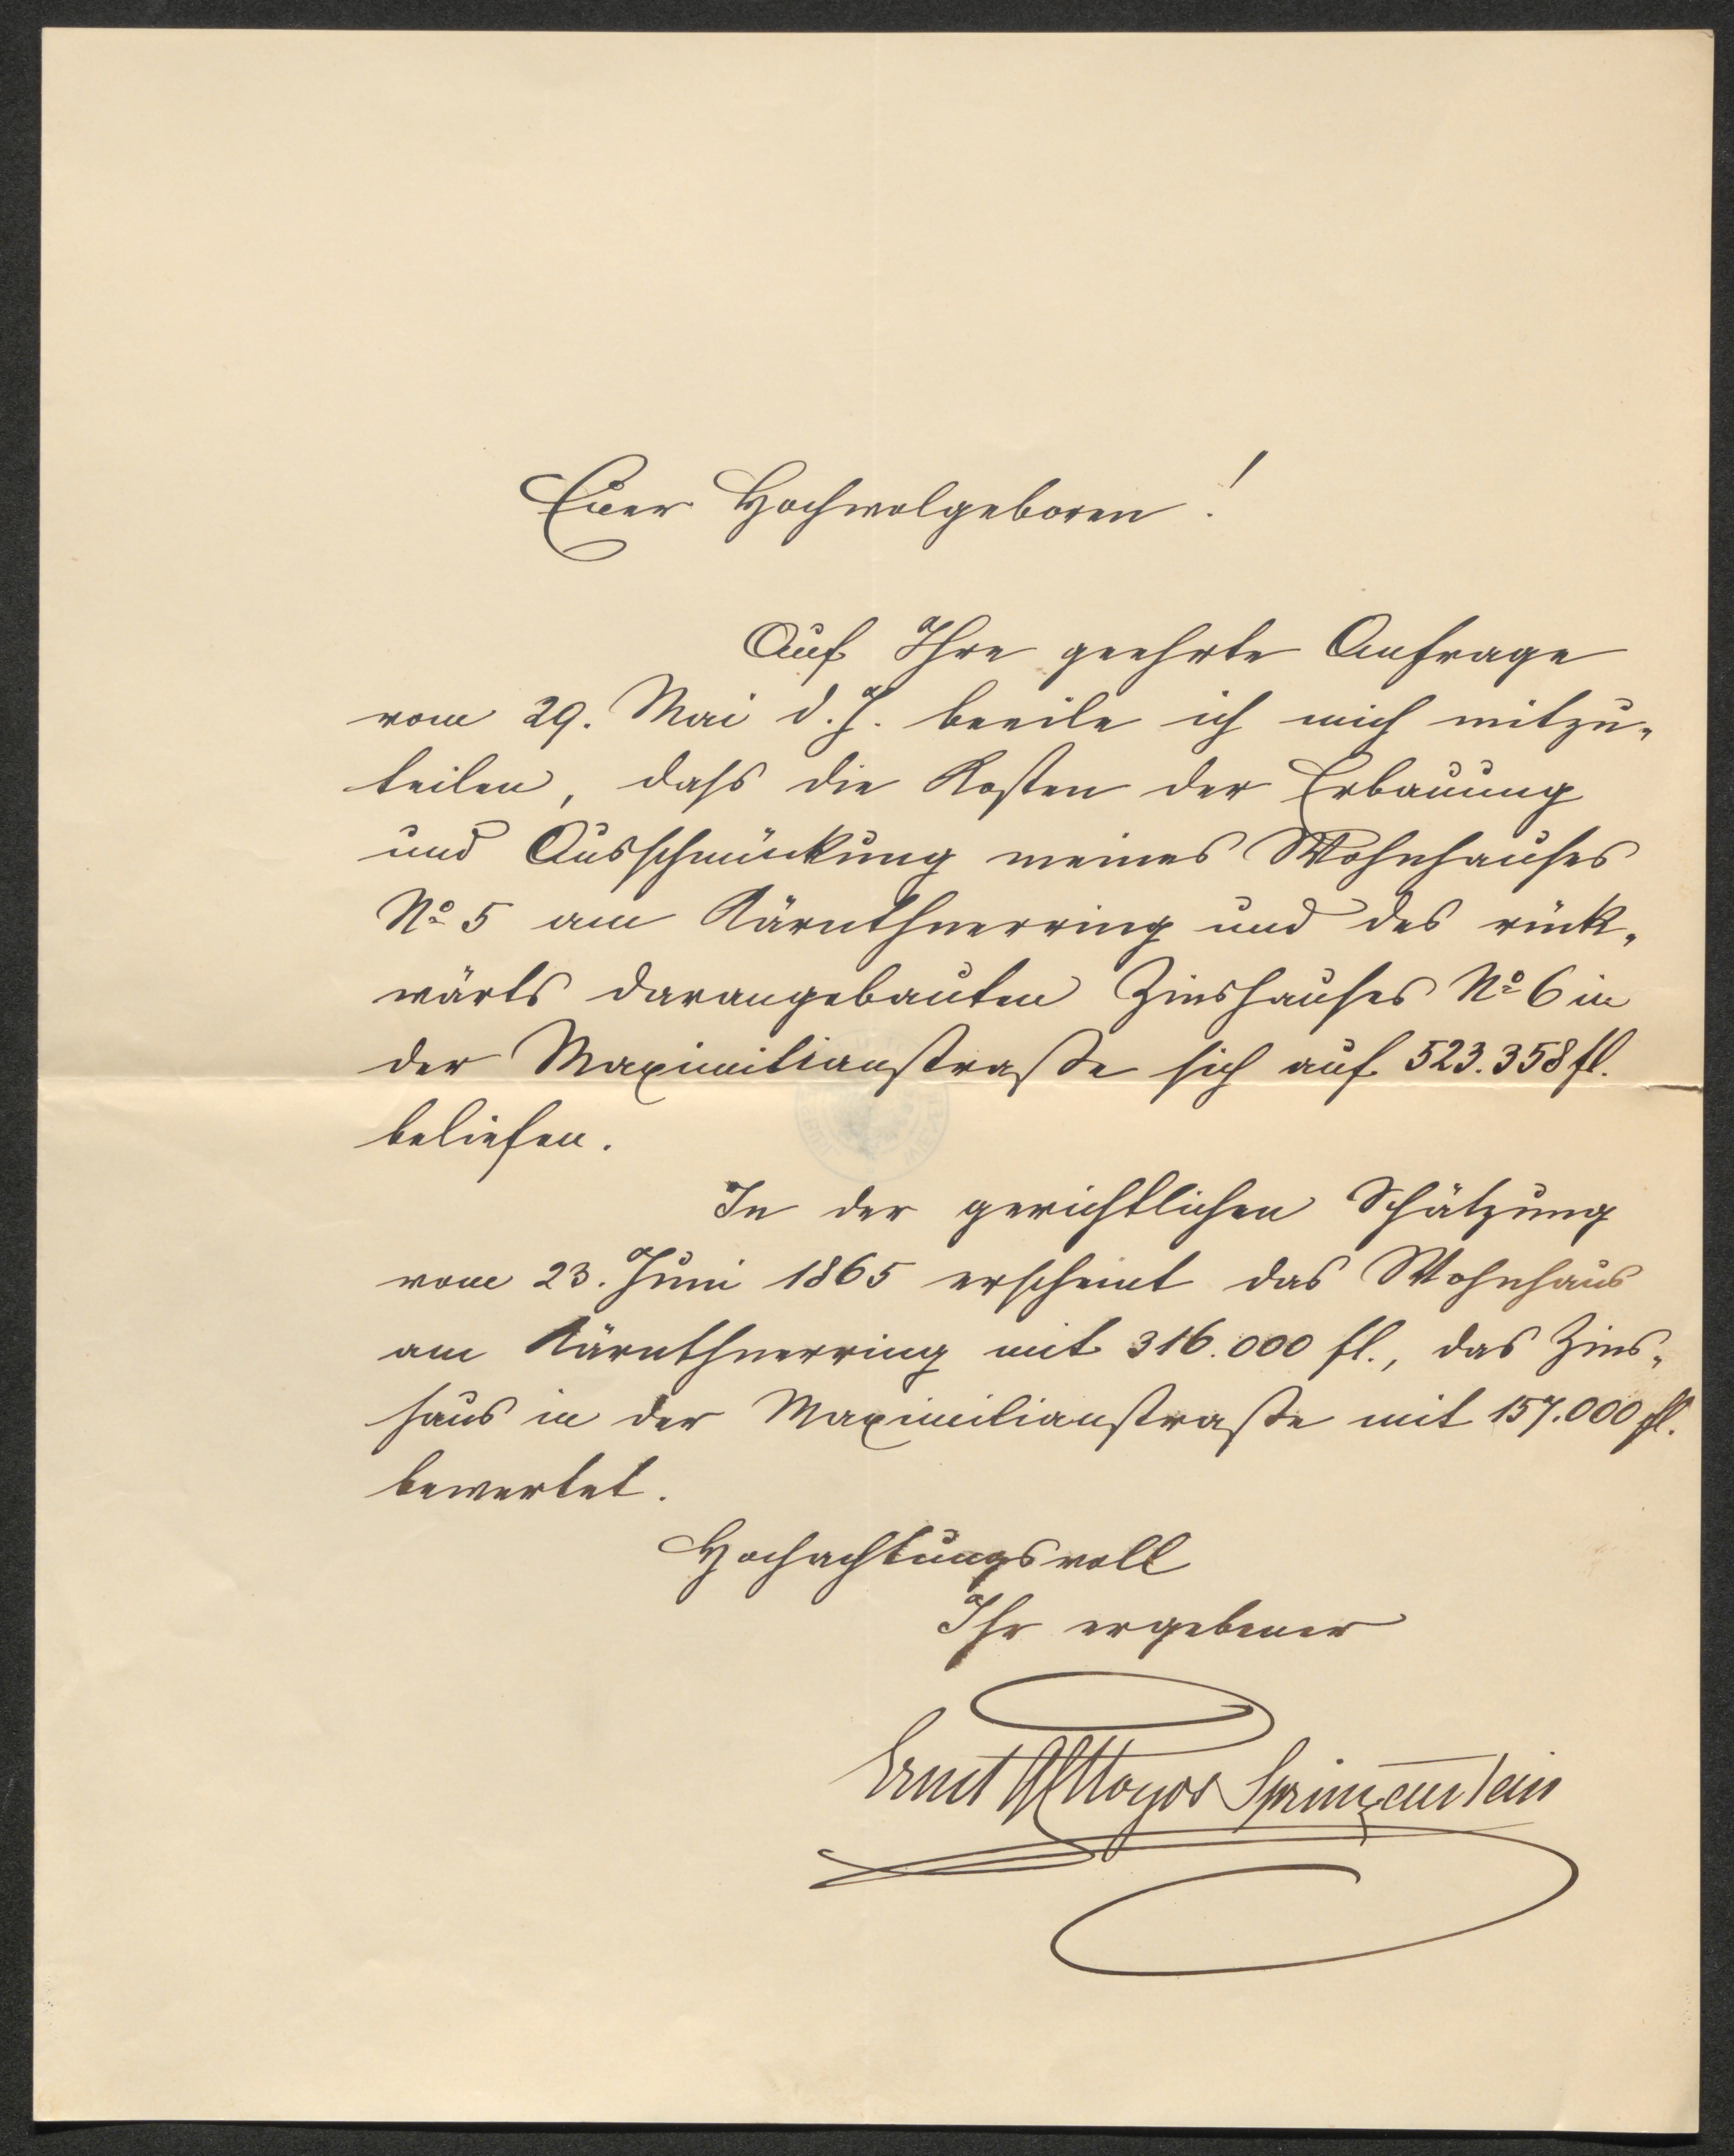 Euer Hochwolgeboren!
Auf Ihre geehrte Anfrage
vom 29. Mai d. J. beeile ich mich mitzu-
teilen, dass die Kosten der Erbauung
und Ausschmückung meines Wohnhauses
No 5 am Kärnthnerring und des rück-
wärts darangebauten Zinshauses No 6 in
der Maximilianstraße sich auf 523.358 fl.
beliefen.
In der gerichtlichen Schätzung
vom 23. Juni 1865 erscheint das Wohnhaus
am Kärnthnerring mit 316.000 fl., das Zins-
haus in der Maximilianstraße mit 157.000 fl.
bewertet.
Hochachtungsvoll
Ihr ergebener
Ernst Hoyos Sprinzenstein